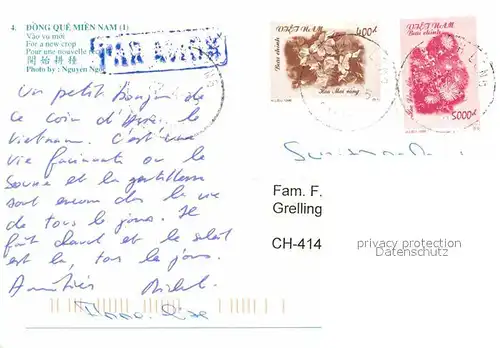 4. ĐỒNG QUÊ MIỀN NAM (1)
Vào vụ mới
For a new crop
Pour une nouvelle
開始耕種
Photo by : Nguyễn
PAR AVION
VIỆT NAM
Bưu chính
400đ
Hoa Mai vàng
VIỆT NAM
Bưu chính
5000đ
Un petit bonjour de
ce coin d'Asie le
Vietnam. C'est une
vie fascinante ou le
Sourire et la gentillesse
sont encore dans la vie
de tous les jours. Il
fait chaud et le soleil
est là, tous les jours.
Amitiés Michel
Fam. F.
Grelling
CH-414
privacy protection
Datenschutz